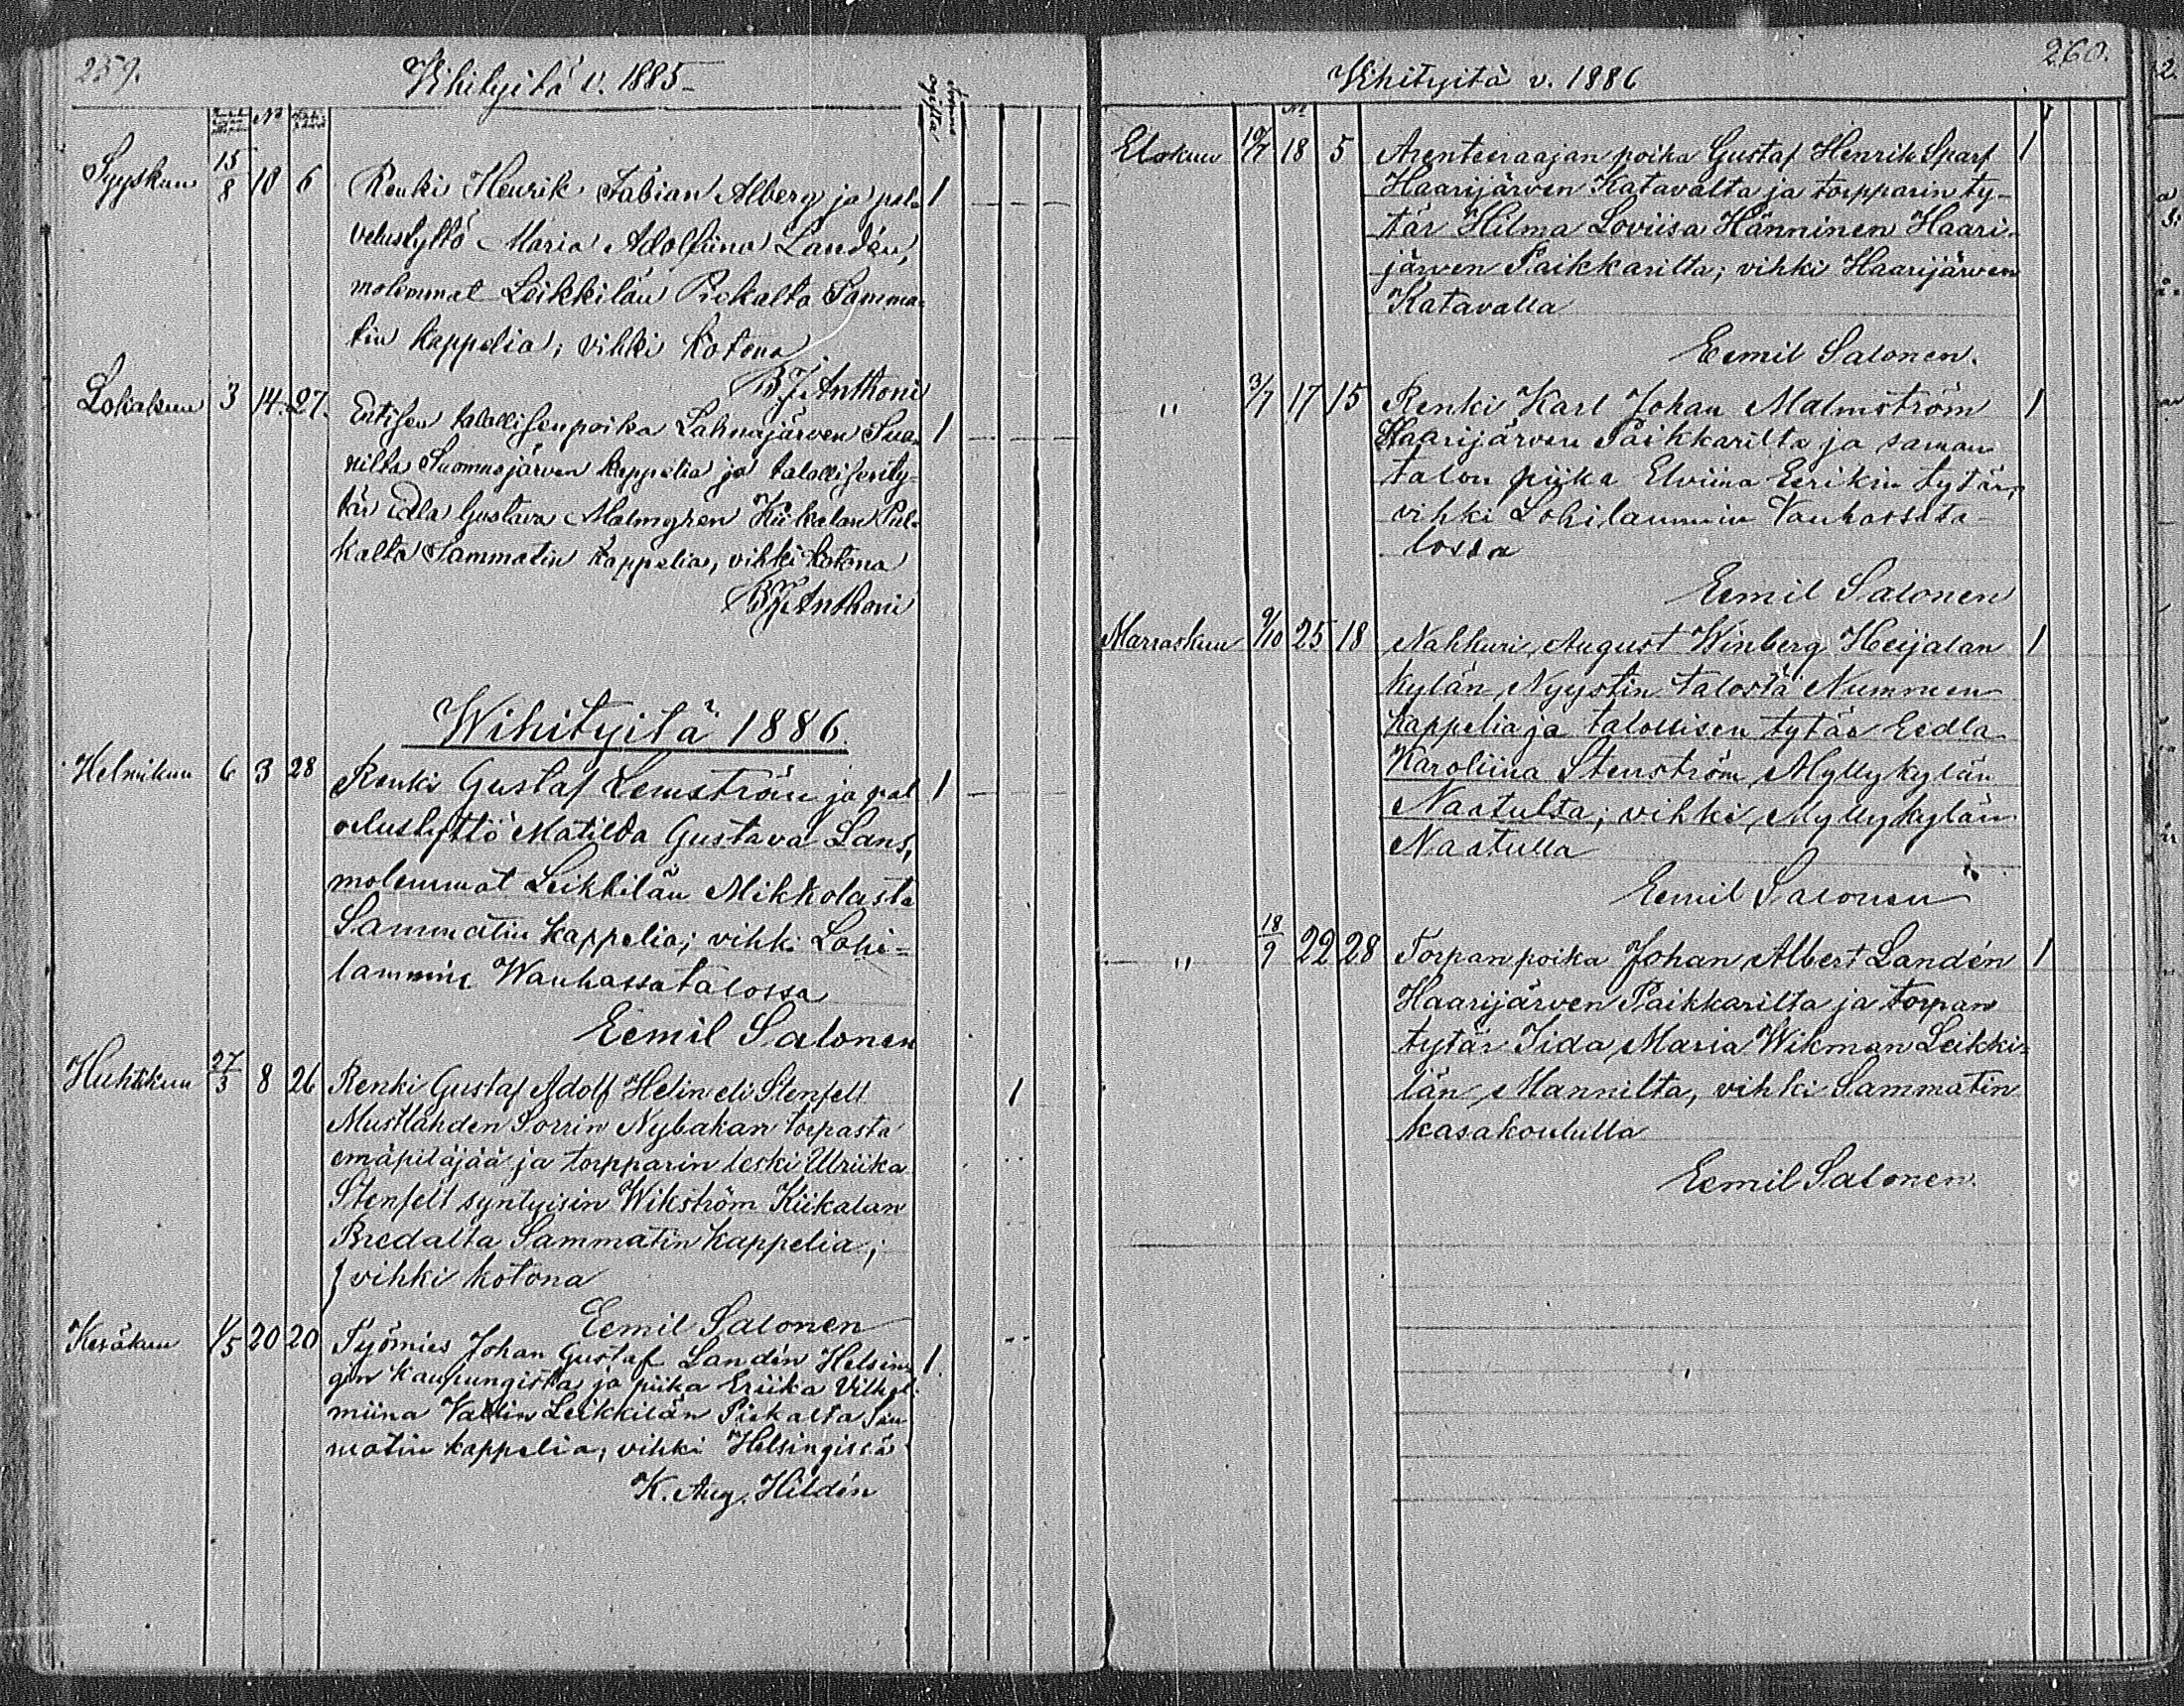 259.
Vihityitä v. 1885
No
Syyskuu 15/8 10 6 Renki Henrik Fabian Alberg ja pal= 1
velustyttö Maria Adolfiina Landén,
molemmat Leikkilän Piekalta Samma=
tin kappelia; vihki kotona
B. J. Anthoni
Lokakuu 3 14. 27. Entisen talollisen poika Lahnajärven Sua= 1
nilta Suomusjärven kappelia ja talollisen ty=
tär Edla Gustava Malmgren Kiikalan Pul=
kalta Sammatin kappelia, vihki kotona
B. J. Anthoni
Wihityitä 1886.
Helmikuu 6 3 28 Renki Gustaf Lemström ja pal 1
velustyttö Matilda Gustava Lans,
molemmat Leikkilän Mikkolasta
Sammatin kappelia; vihki Lohi=
lammin Wanhassatalossa
Eemil Salonen
Huhtikuu 27/3 8 26 Renki Gustaf Adolf Helin eli Stenfelt 1
Mustlahden Sorrin Nybakan torpasta
emäpitäjää ja torpparin leski Ulriika
Stenfelt syntyisin Wikström Kiikalan
Bredalta Sammatin kappelia;
vihki kotona
Eemil Salonen
Kesäkuu 1/5 20 20 Työmies Johan Gustaf Landén Helsin= 1
gin kaupungista ja piika Eriika Vilhel=
miina Vallin Leikkilän Piekalta Sam
matin kappelia, vihki Helsingissä
K. Aug. Hildén
260.
Vihityitä v. 1886
No
Elokuu 10/7 18 5 Arenteeraajan poika Gustaf Henrik Sparf 1
Haarijärven Katavalta ja torpparin ty-
tär Hilma Loviisa Hänninen Haari-
järven Paikkarilta; vihki Haarijärven
Katavalla
Eemil Salonen.
" 3/7 17 15 Renki Karl Johan Malmström 1
Haarijärven Paikkarilta ja saman
talon piika Elviina Eerikin tytär,
vihki Lohilammin Vanhassata-
lossa
Eemil Salonen
Marraskuu 9/10 25 18 Nahkuri August Winberg Heijalan 1
kylän Nyystin talosta Nummen
kappelia ja talollisen tytär Eedla
Karoliina Stenström Myllykylän
Naatulta; vihki Myllykylän
Naatulla
Eemil Salonen
" 18/9 22 28 Torpan poika Johan Albert Landén 1
Haarijärven Paikkarilta ja torpan
tytär Iida Maria Wikman Leikki=
län Mannilta, vihki Sammatin
kasakoululla
Eemil Salonen.